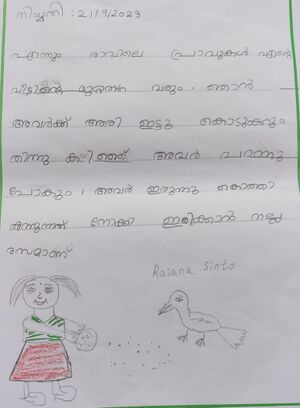 തിയ്യതി : 21/9/2023
എന്നും രാവിലെ പ്രാവുകൾ എന്റെ
വീടിന്റെ മുറ്റത്ത് വരും . ഞാൻ
അവർക്ക് അരി ഇട്ടു കൊടുക്കും
തിന്നു കഴിഞ്ഞ് അവർ പറന്നു
പോകും । അവർ ഇരുന്നു കൊത്തി
തിന്നുന്നത് നോക്കി ഇരിക്കാൻ നല്ല
രസമാണ്
Raiana Sinto